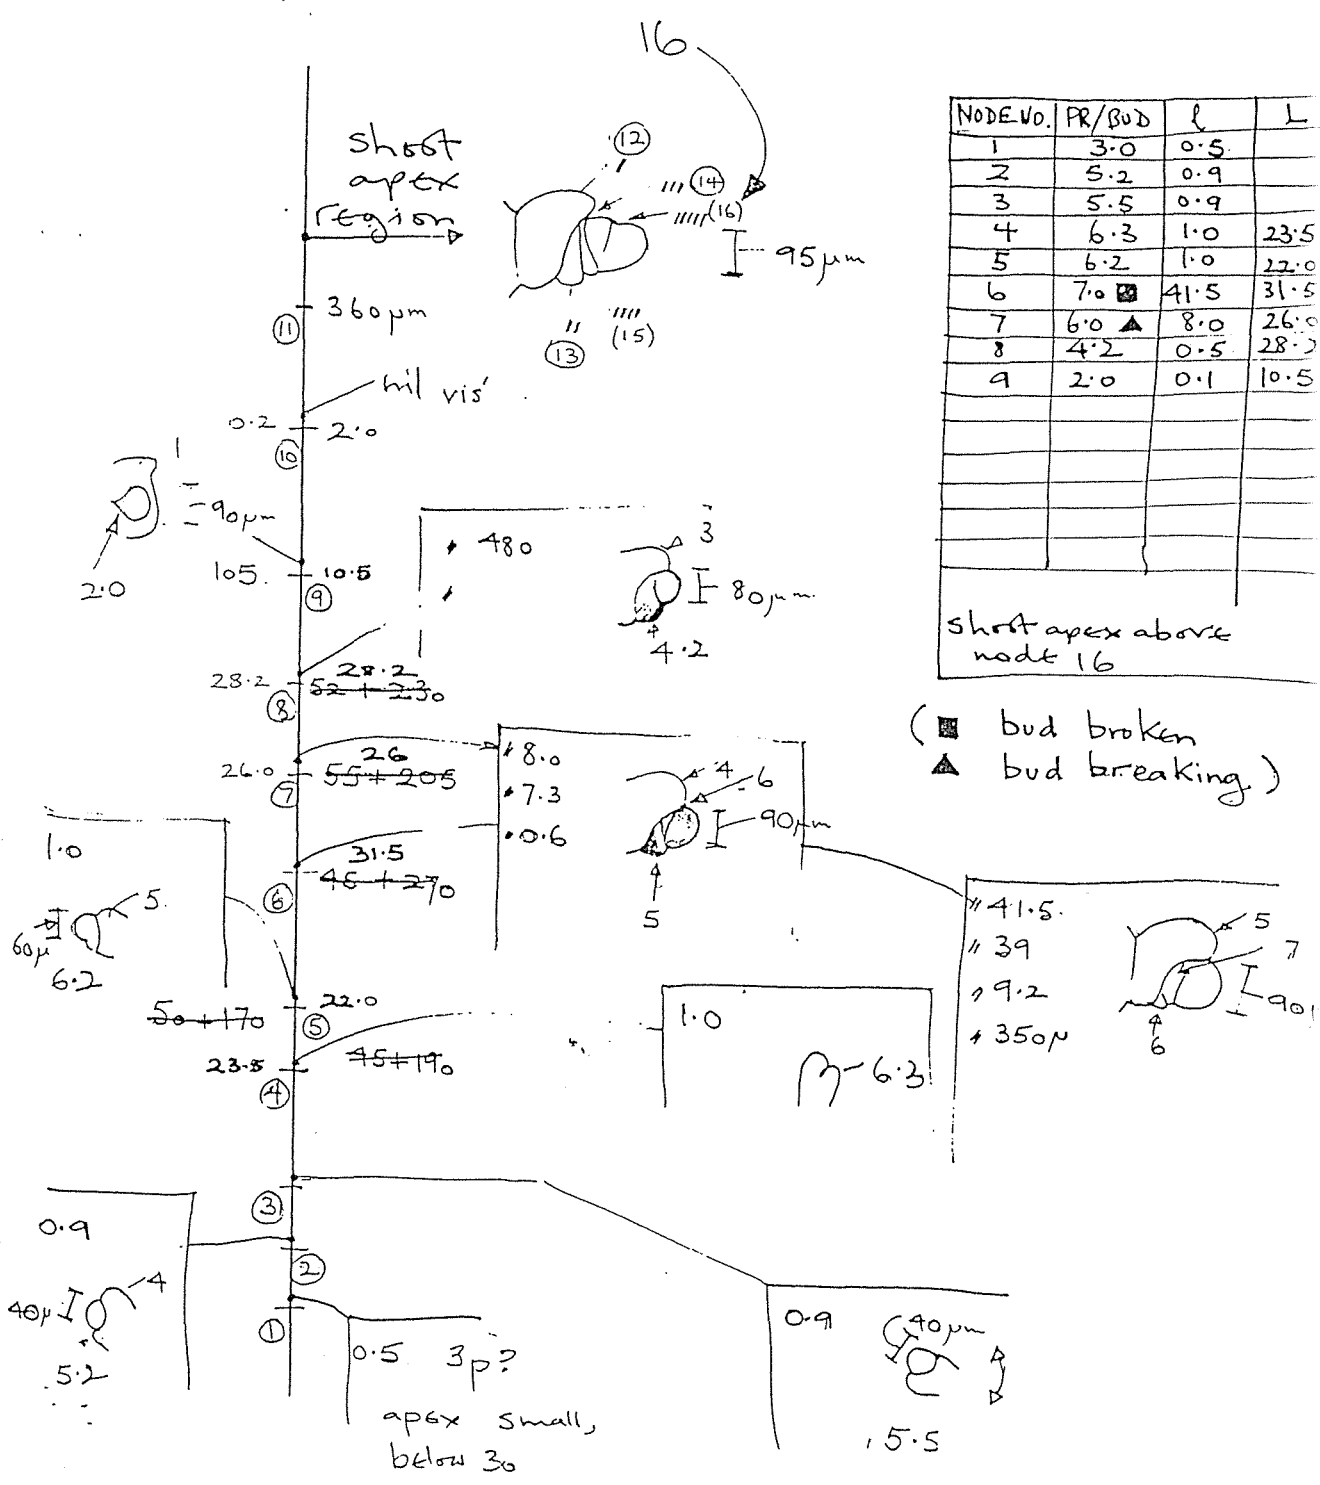 16
shoot
apex
region
12
14
(16)
95 µm
13
(15)
360 µm
11
nil vis'
0.2
2.0
10
1
90 µm
2.0
105.
10.5
9
480
3
80 µm.
4.2
28.2
28.2
52 + 230
8
26
26.0
55 + 205
7
8.0
7.3
0.6
4
6
90 µm
5
31.5
45 + 270
6
1.0
5.
60 µ
6.2
50 + 170
22.0
5
23.5
45 + 190
4
1.0
6.3
41.5.
39
9.2
350 µ
5
7
90
6
3
0.9
4
40 µ
5.2
2
1
0.5 3p?
apex small,
below 30
0.9
40 µm
5.5
NODE NO. PR/BUD l L
1 3.0 0.5
2 5.2 0.9
3 5.5 0.9
4 6.3 1.0 23.5
5 6.2 1.0 22.0
6 7.0 ■ 41.5 31.5
7 6.0 ▲ 8.0 26.0
8 4.2 0.5 28.2
9 2.0 0.1 10.5
shoot apex above
node 16
(■ bud broken
▲ bud breaking.)